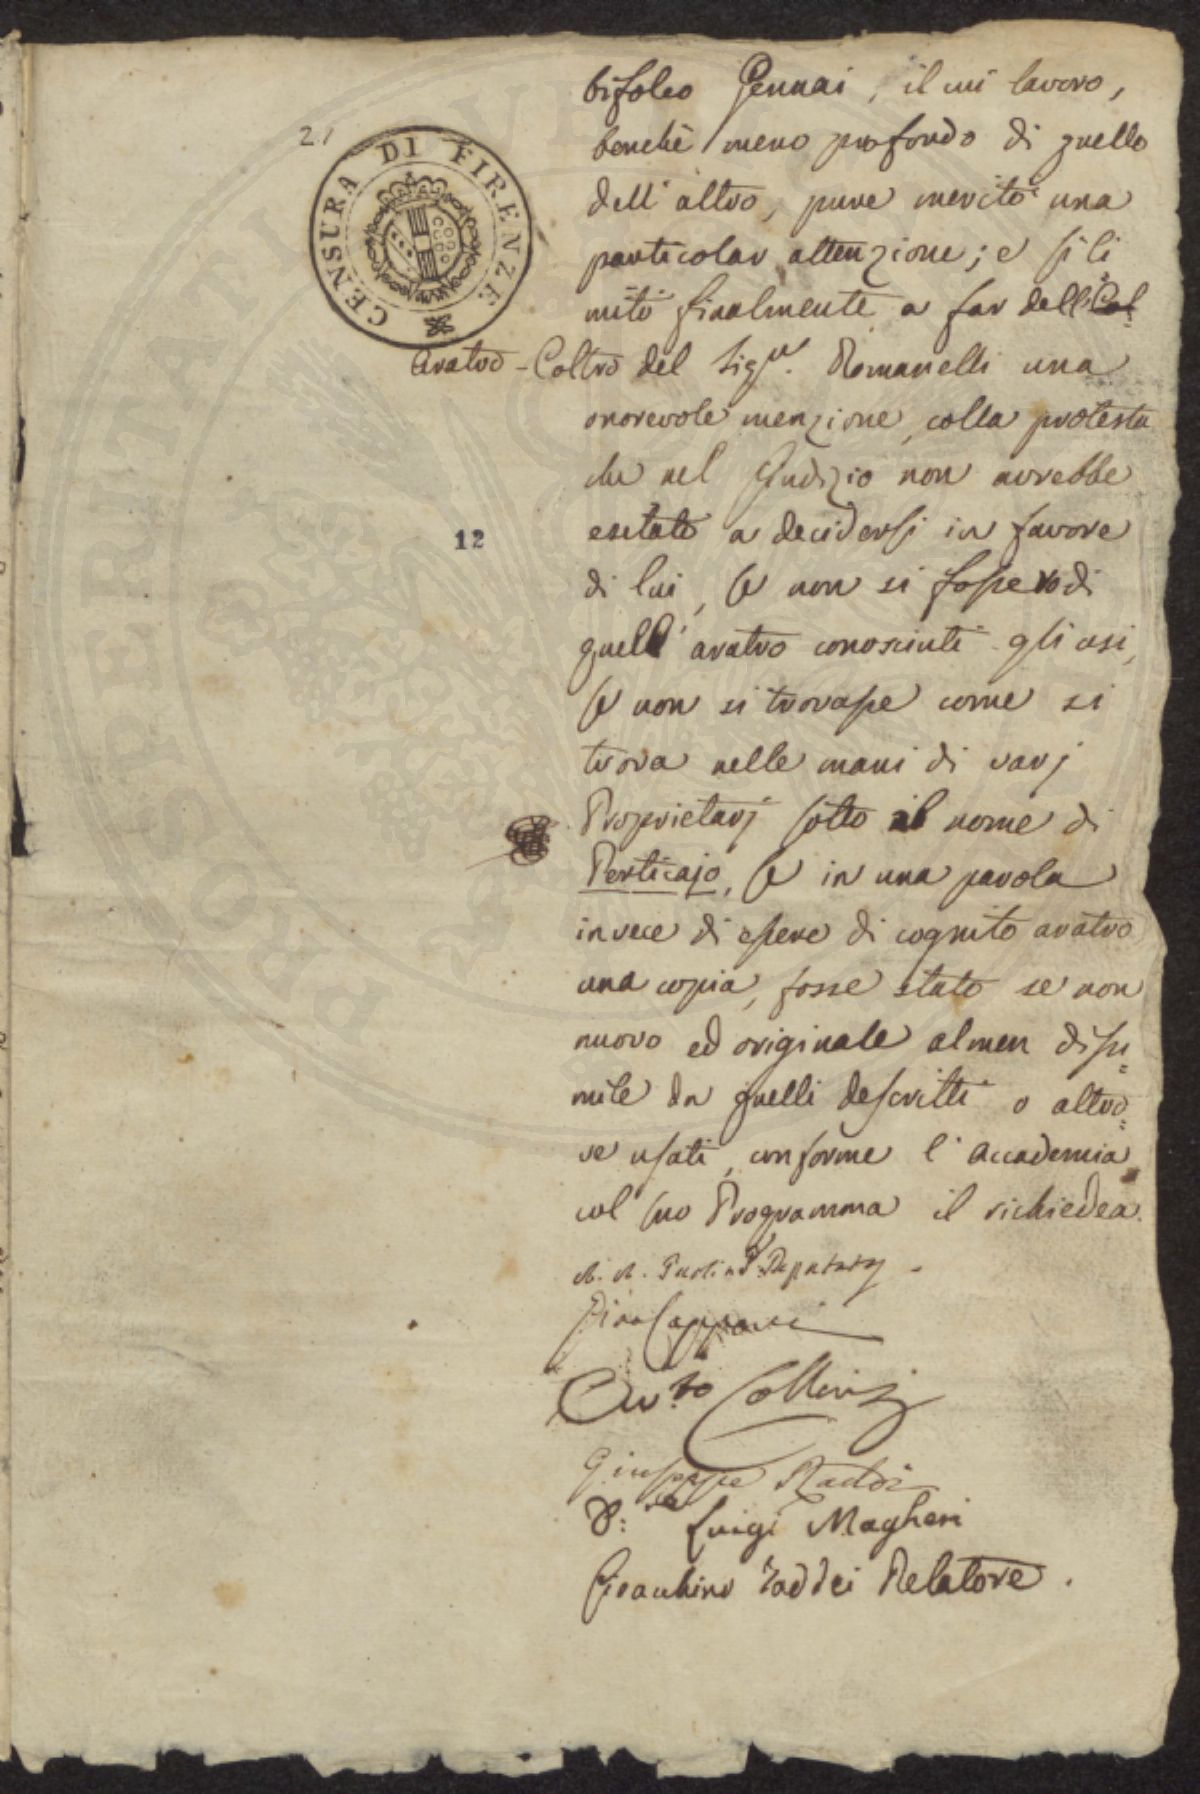 21
CENSURA DI FIRENZE
bifolco Gennai, il cui lavoro,
benchè meno profondo di quello
dell'altro, pure meritò una
particolar attenzione; e si li
mitò finalmente a far dell' Col=
Aratro-Coltro del Sigr. Romanelli una
onorevole menzione, colla protesta
che nel Giudizio non avrebbe
esitato a decidersi in favore
12
di lui, se non si fossero di
quell' aratro conosciuti gli usi,
se non si trovasse come si
trova nelle mani di varj
Proprietarj sotto il nome di
Perticajo, se in una parola
invece di essere di cognito aratro
una copia, fosse stato se non
nuovo ed originale almen dissi=
mile da quelli descritti o altro=
ve usati, conforme l'Accademia
col suo Programma il richiedea.
A. A. Paoli Deputato
Gino Capponi
Collini
Giuseppe Raddi
Dr. Luigi Magheri
Gioacchino Taddei Relatore.
PROPERITATI